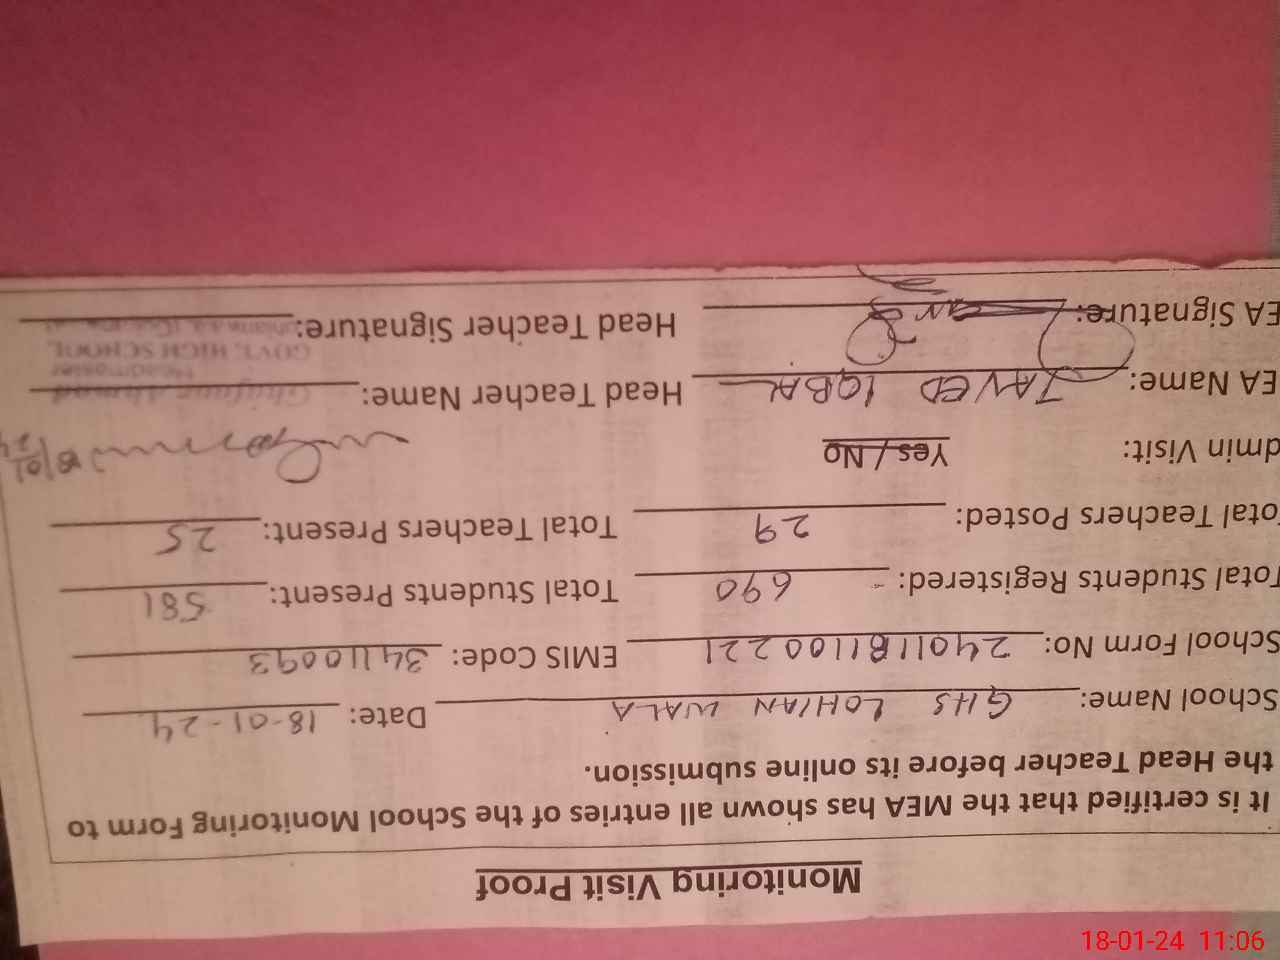 Monitoring Visit Proof
It is certified that the MEA has shown all entries of the School Monitoring Form to
the Head Teacher before its online submission.
School Name: GHS LOHIAN WALA Date: 18-01-24
School Form No: 24011811100221 EMIS Code: 34110093
Total Students Registered: 690 Total Students Present: 581
otal Teachers Posted: 29 Total Teachers Present: 25
dmin Visit: Yes / No
EA Name: JAVED IQBAL Head Teacher Name:
Headmaster
GOVT. HIGH SCHOOL
EA Signature: Head Teacher Signature:
18-01-24 11:06